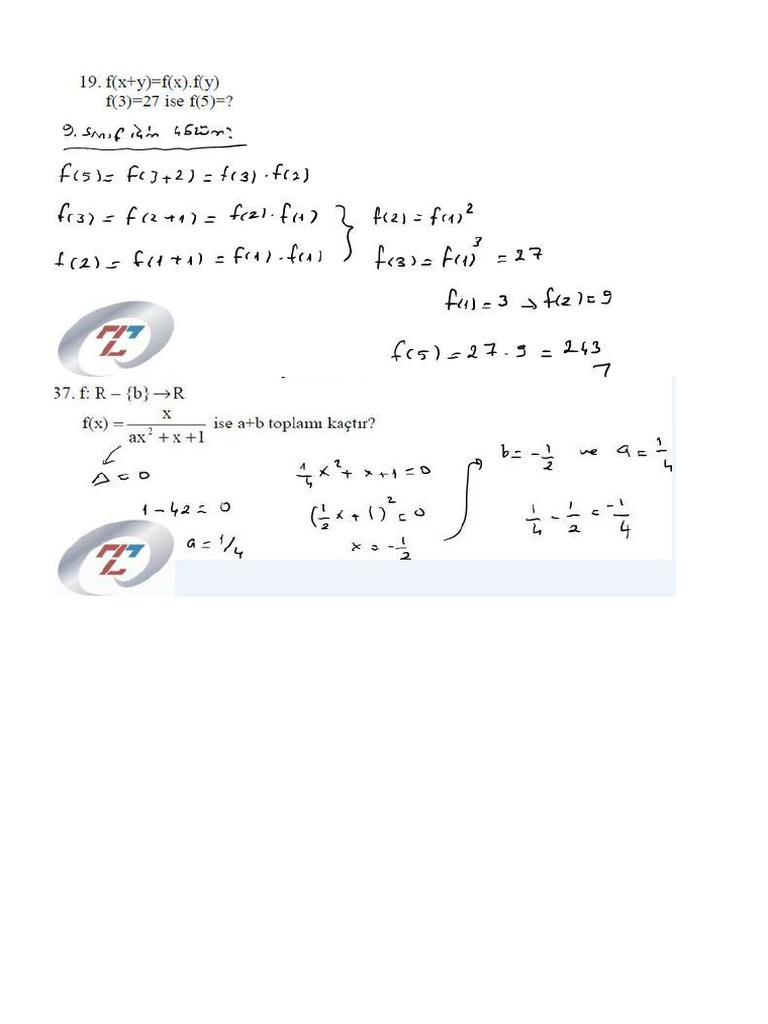 19. f(x+y)=f(x).f(y)
f(3)=27 ise f(5)=?
9. sınıf için çözüm:
f(5)= f(3+2) = f(3) . f(2)
f(3) = f(2+1) = f(2) . f(1) } f(2) = f(1)²
f(2) = f(1+1) = f(1) . f(1) f(3) = f(1)³ = 27
f(1) = 3 → f(2) = 9
f(5) = 27 . 9 = 243
37. f: R – {b} → R
f(x) = x / (ax² + x + 1) ise a+b toplamı kaçtır?
Δ = 0
1 - 4a = 0
a = 1/4
1/4 x² + x + 1 = 0
(1/2 x + 1)² = 0
x = - 1/2
b = - 1/2 ve a = 1/4
1/4 - 1/2 = - 1/4